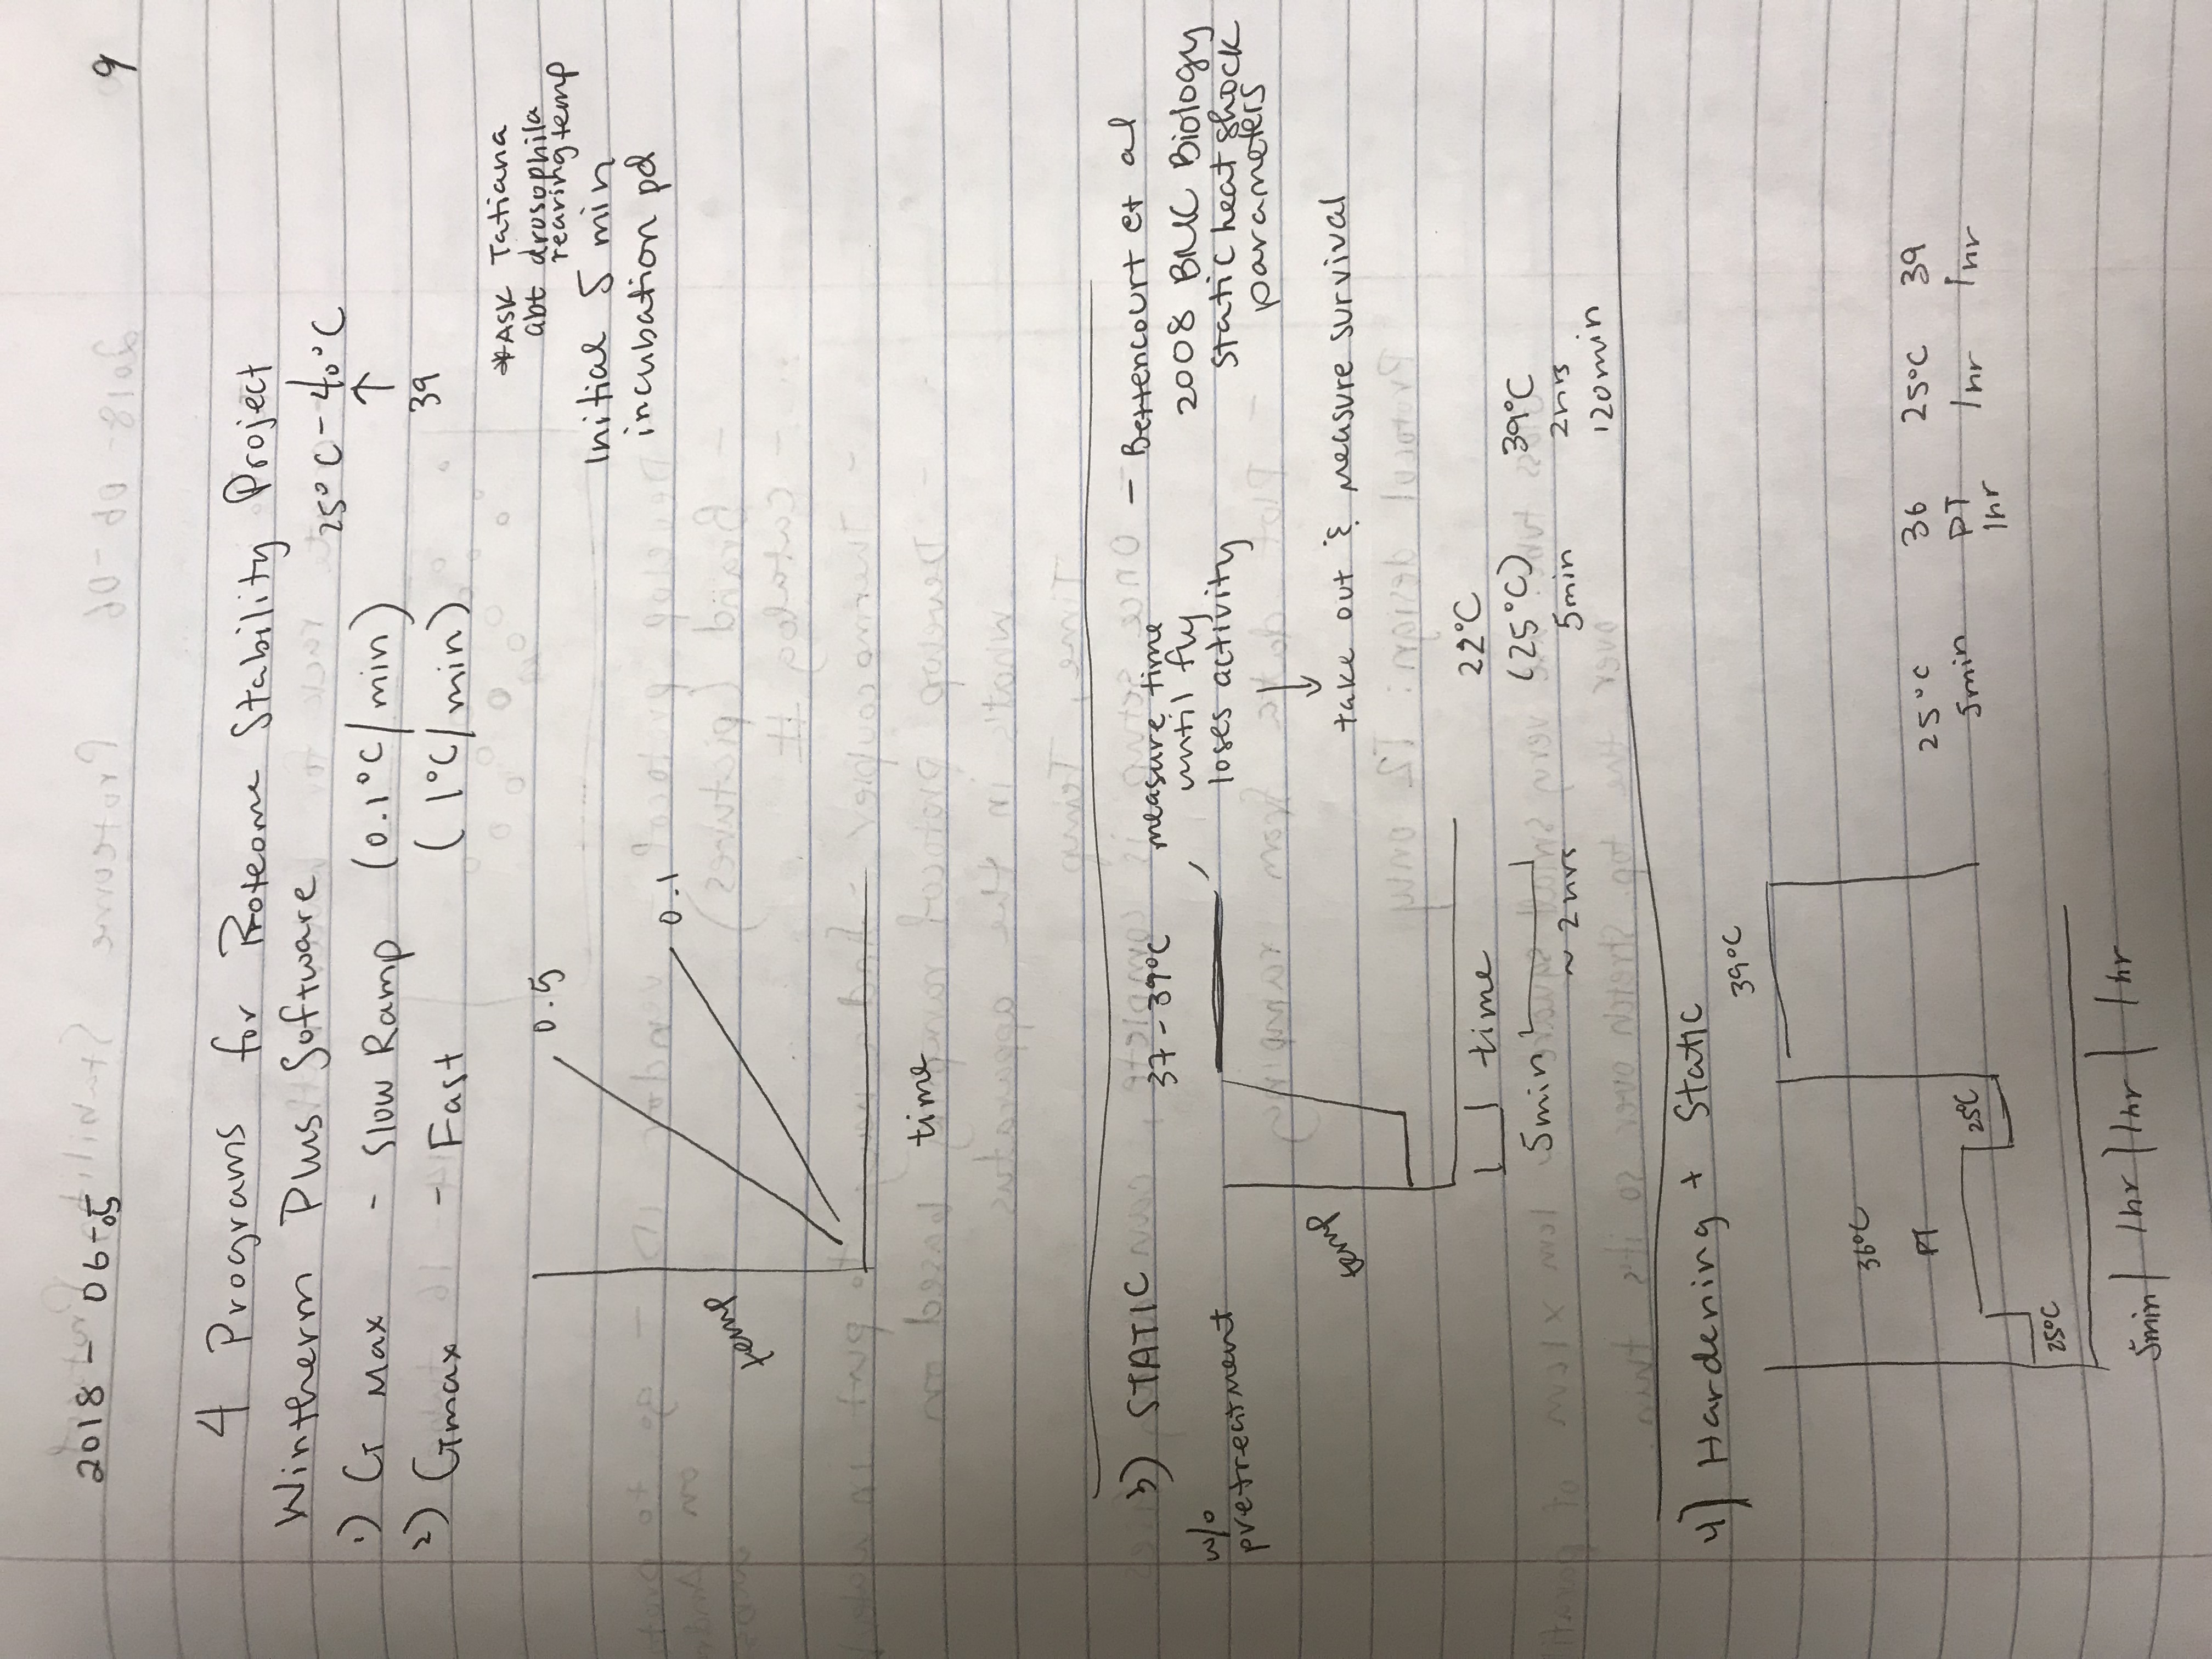 2018 - 06-05
9
4 Programs for Proteome Stability Project
Wintherm Plus Software
25°C - 40°C
↑
39
1) CT Max - Slow Ramp (0.1°C/min)
2) CTmax - Fast (1°C/min)
*ASK Tatiana
abt drosophila
rearing temp
Initial 5 min
incubation pd
0.5
0.1
temp
time
3) STATIC
w/o
pretreatment
37-39°C
measure time
until fly
loses activity
↓
take out & measure survival
- Bettencourt et al
2008 BMC Biology
static heat shock
parameters
temp
time
5min
~2hrs
22°C
(25°C) 39°C
5min 2hrs
120min
4) Hardening + Static
39°C
36°C
PT
25°C
25°C
5min | 1hr | 1hr | 1hr
25°C 36 25°C 39
5min PT 1hr 1hr
1hr